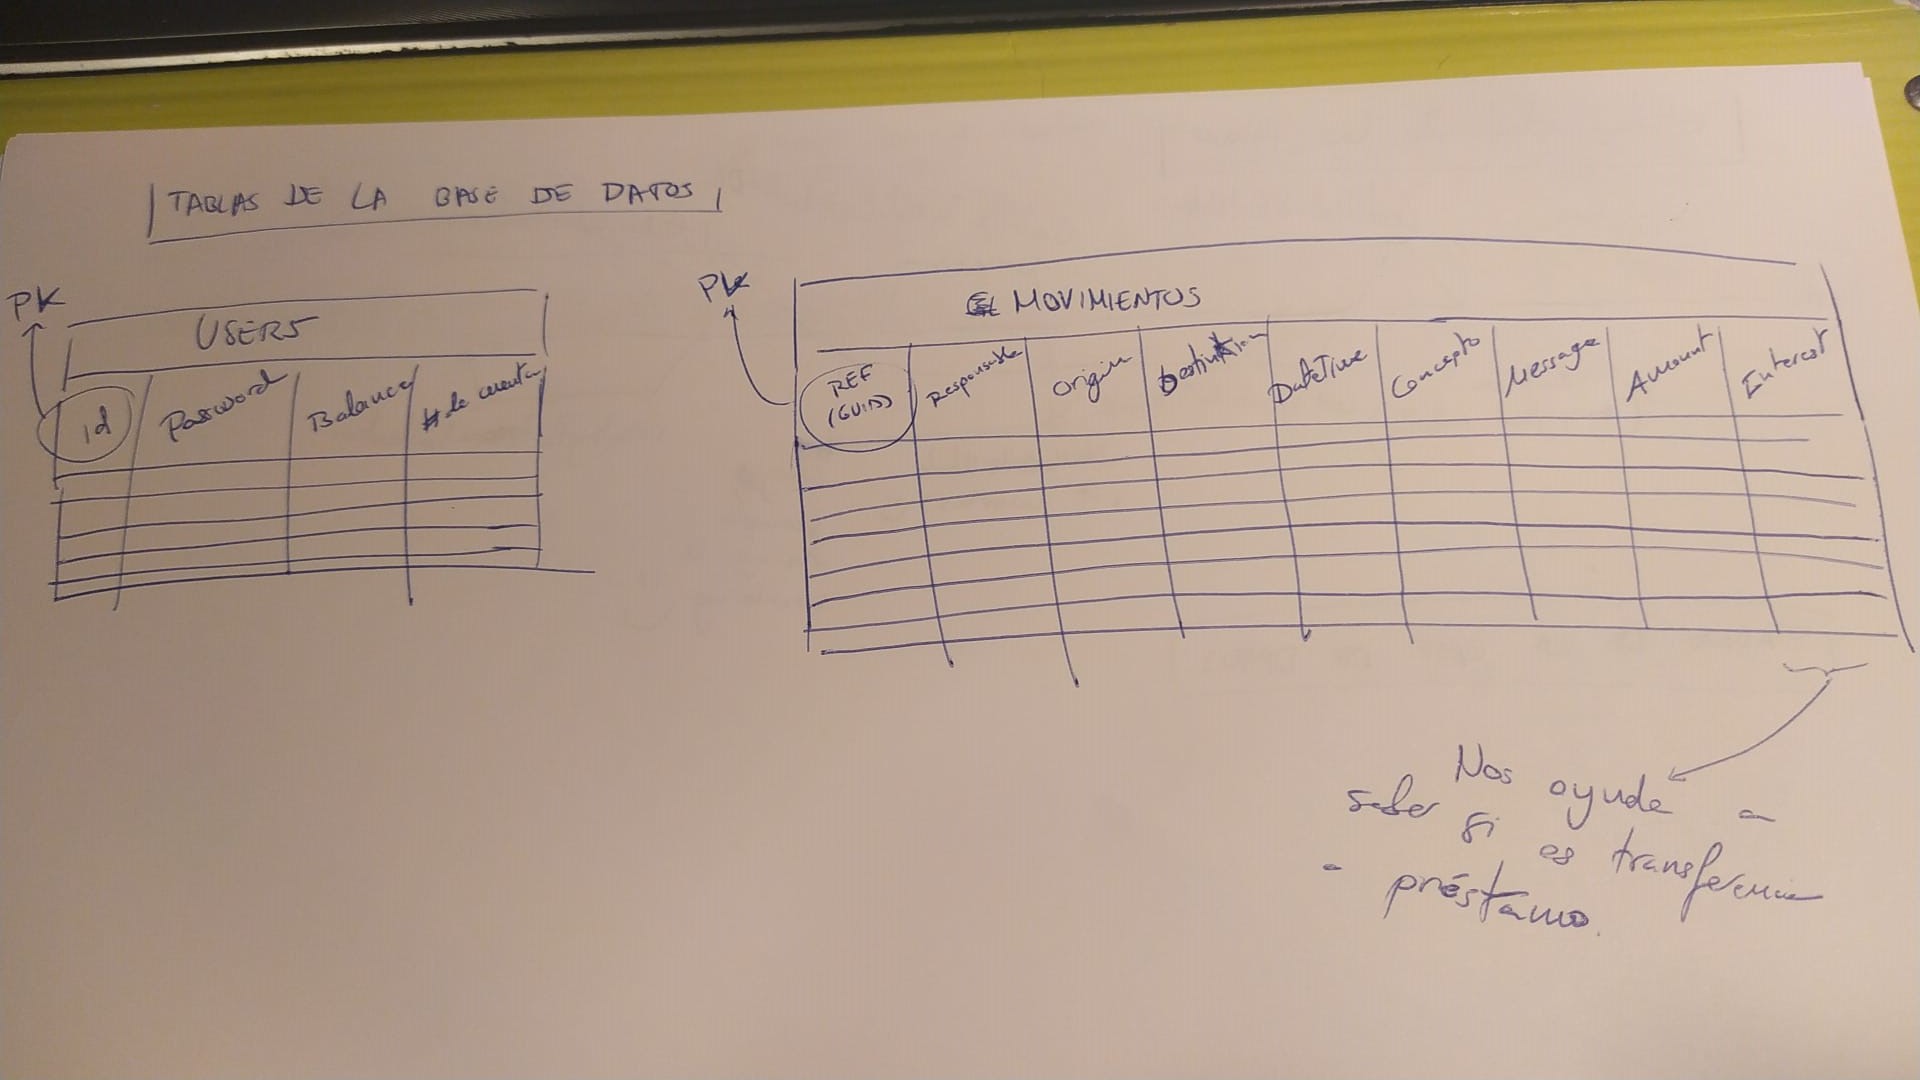 TABLAS DE LA BASE DE DATOS
PK
USERS
id
Password
Balance
# de cuenta
PK
MOVIMIENTOS
REF
(GUID)
Responsable
Origin
Destination
DateTime
Concepto
Message
Amount
Interest
Nos ayuda a
saber si es transferencia
o préstamo.